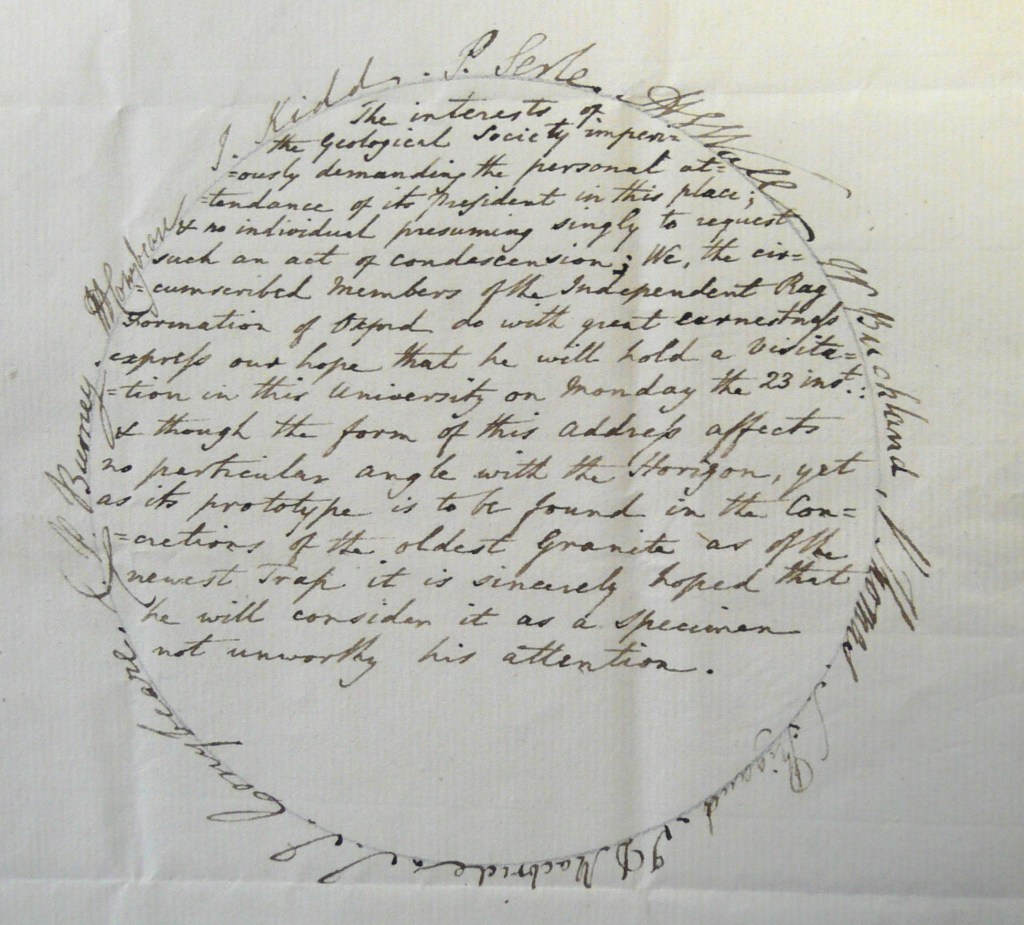 The interests of
the Geological Society imperi=
=ously demanding the personal at=
=tendance of its President in this place;
& no individual presuming singly to request
such an act of condescension; We, the cir=
cumscribed Members of the Independent Rag
Formation of Oxford do with great earnestness
express our hope that he will hold a Visita=
=tion in this University on Monday the 23 inst.:
& though the form of this address affects
no particular angle with the Horizon, yet
as its prototype is to be found in the Con=
=cretions of the oldest Granite as of the
newest Trap it is sincerely hoped that
he will consider it as a specimen
not unworthy his attention.
J. Kidd.
P. Serle.
W Buckland,
V. Thomas.
S. Rigaud
J D Macbride
J. J. Conybeare.
Burney